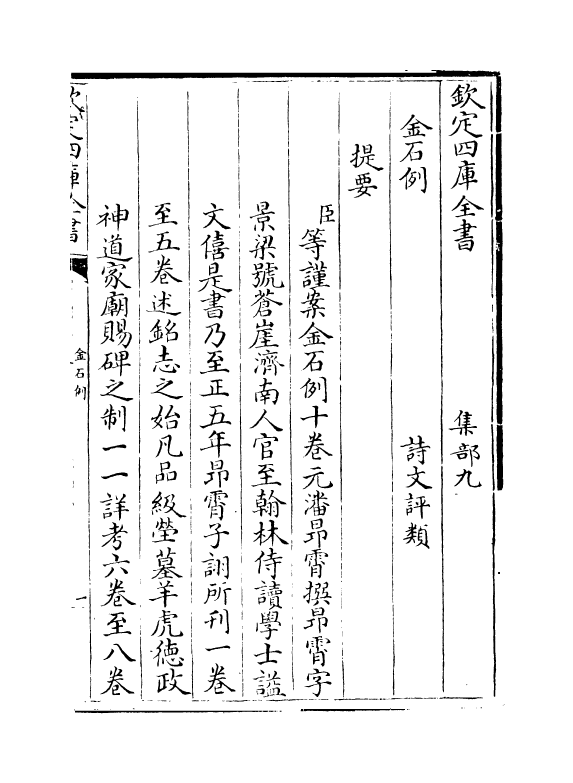 欽定四庫全書　　　　集部九
金石例　　　　　　　詩文評類
提要
臣等謹案金石例十卷元潘昂霄撰昂霄字
景梁號蒼崖濟南人官至翰林侍讀學士諡
文僖是書乃至正五年昂霄子詡所刊一卷
至五卷述銘志之始凡品級塋墓羊虎徳政
神道家廟賜碑之制一一詳考六卷至八卷
欽定四庫全書
金石例
一